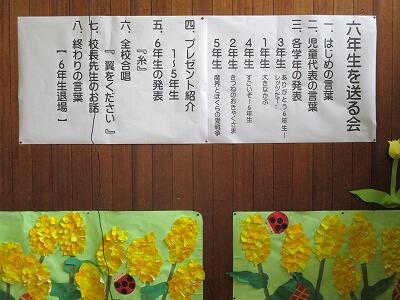 六年生を送る会
一．はじめの言葉
二．児童代表の言葉
三．各学年の発表
３年生 ありがとう６年生！レッツだー！
１年生 大きなかぶ
４年生 すごいぞ！６年生
２年生 きつねのおきゃくさま
５年生 魔界とぼくらの愛戦争
四．プレゼント紹介
１～５年生
五．６年生の発表
『糸』
六．全校合唱
『翼をください』
七．校長先生のお話
八．終わりの言葉
【６年生退場】